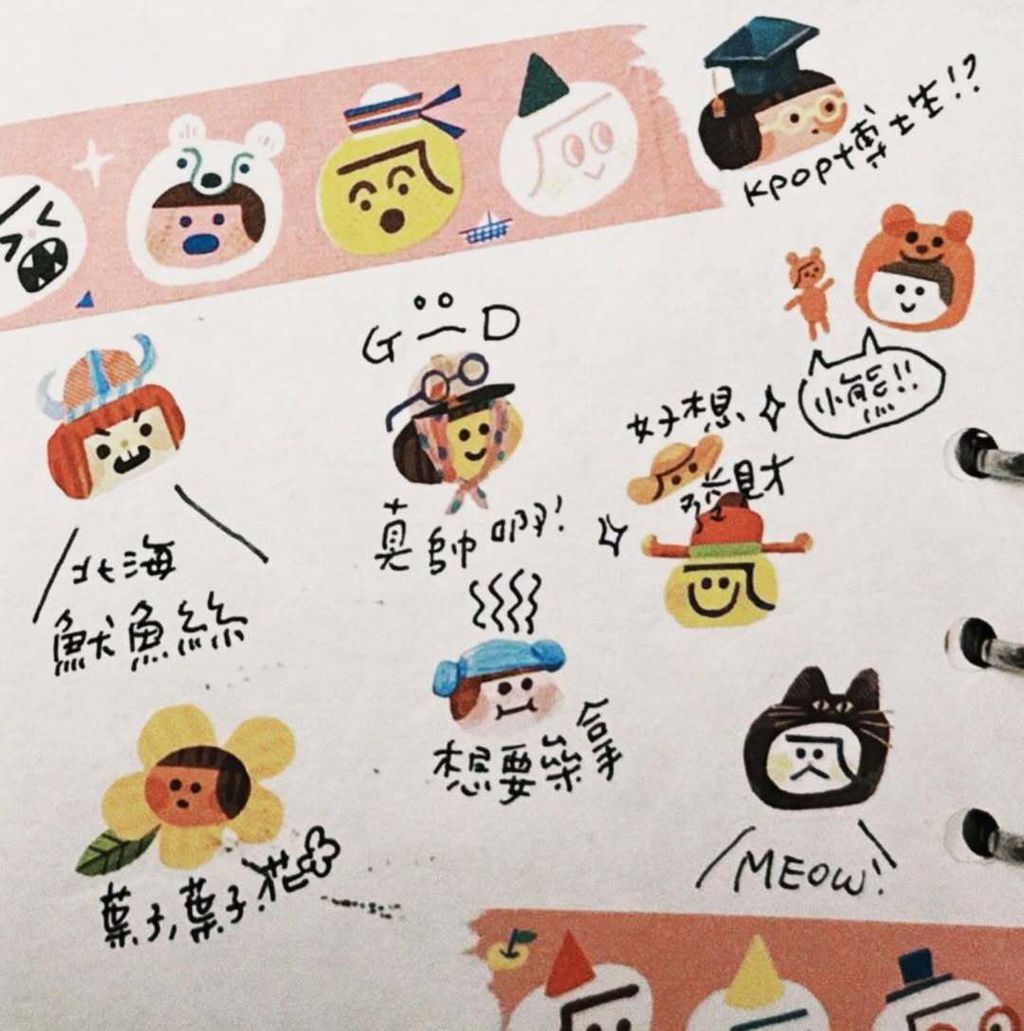 Kpop博士生!?
G D
小熊!!
好想
發財
真帥啊!
北海
魷魚絲
想要
MEOW!
葉子,葉子!花